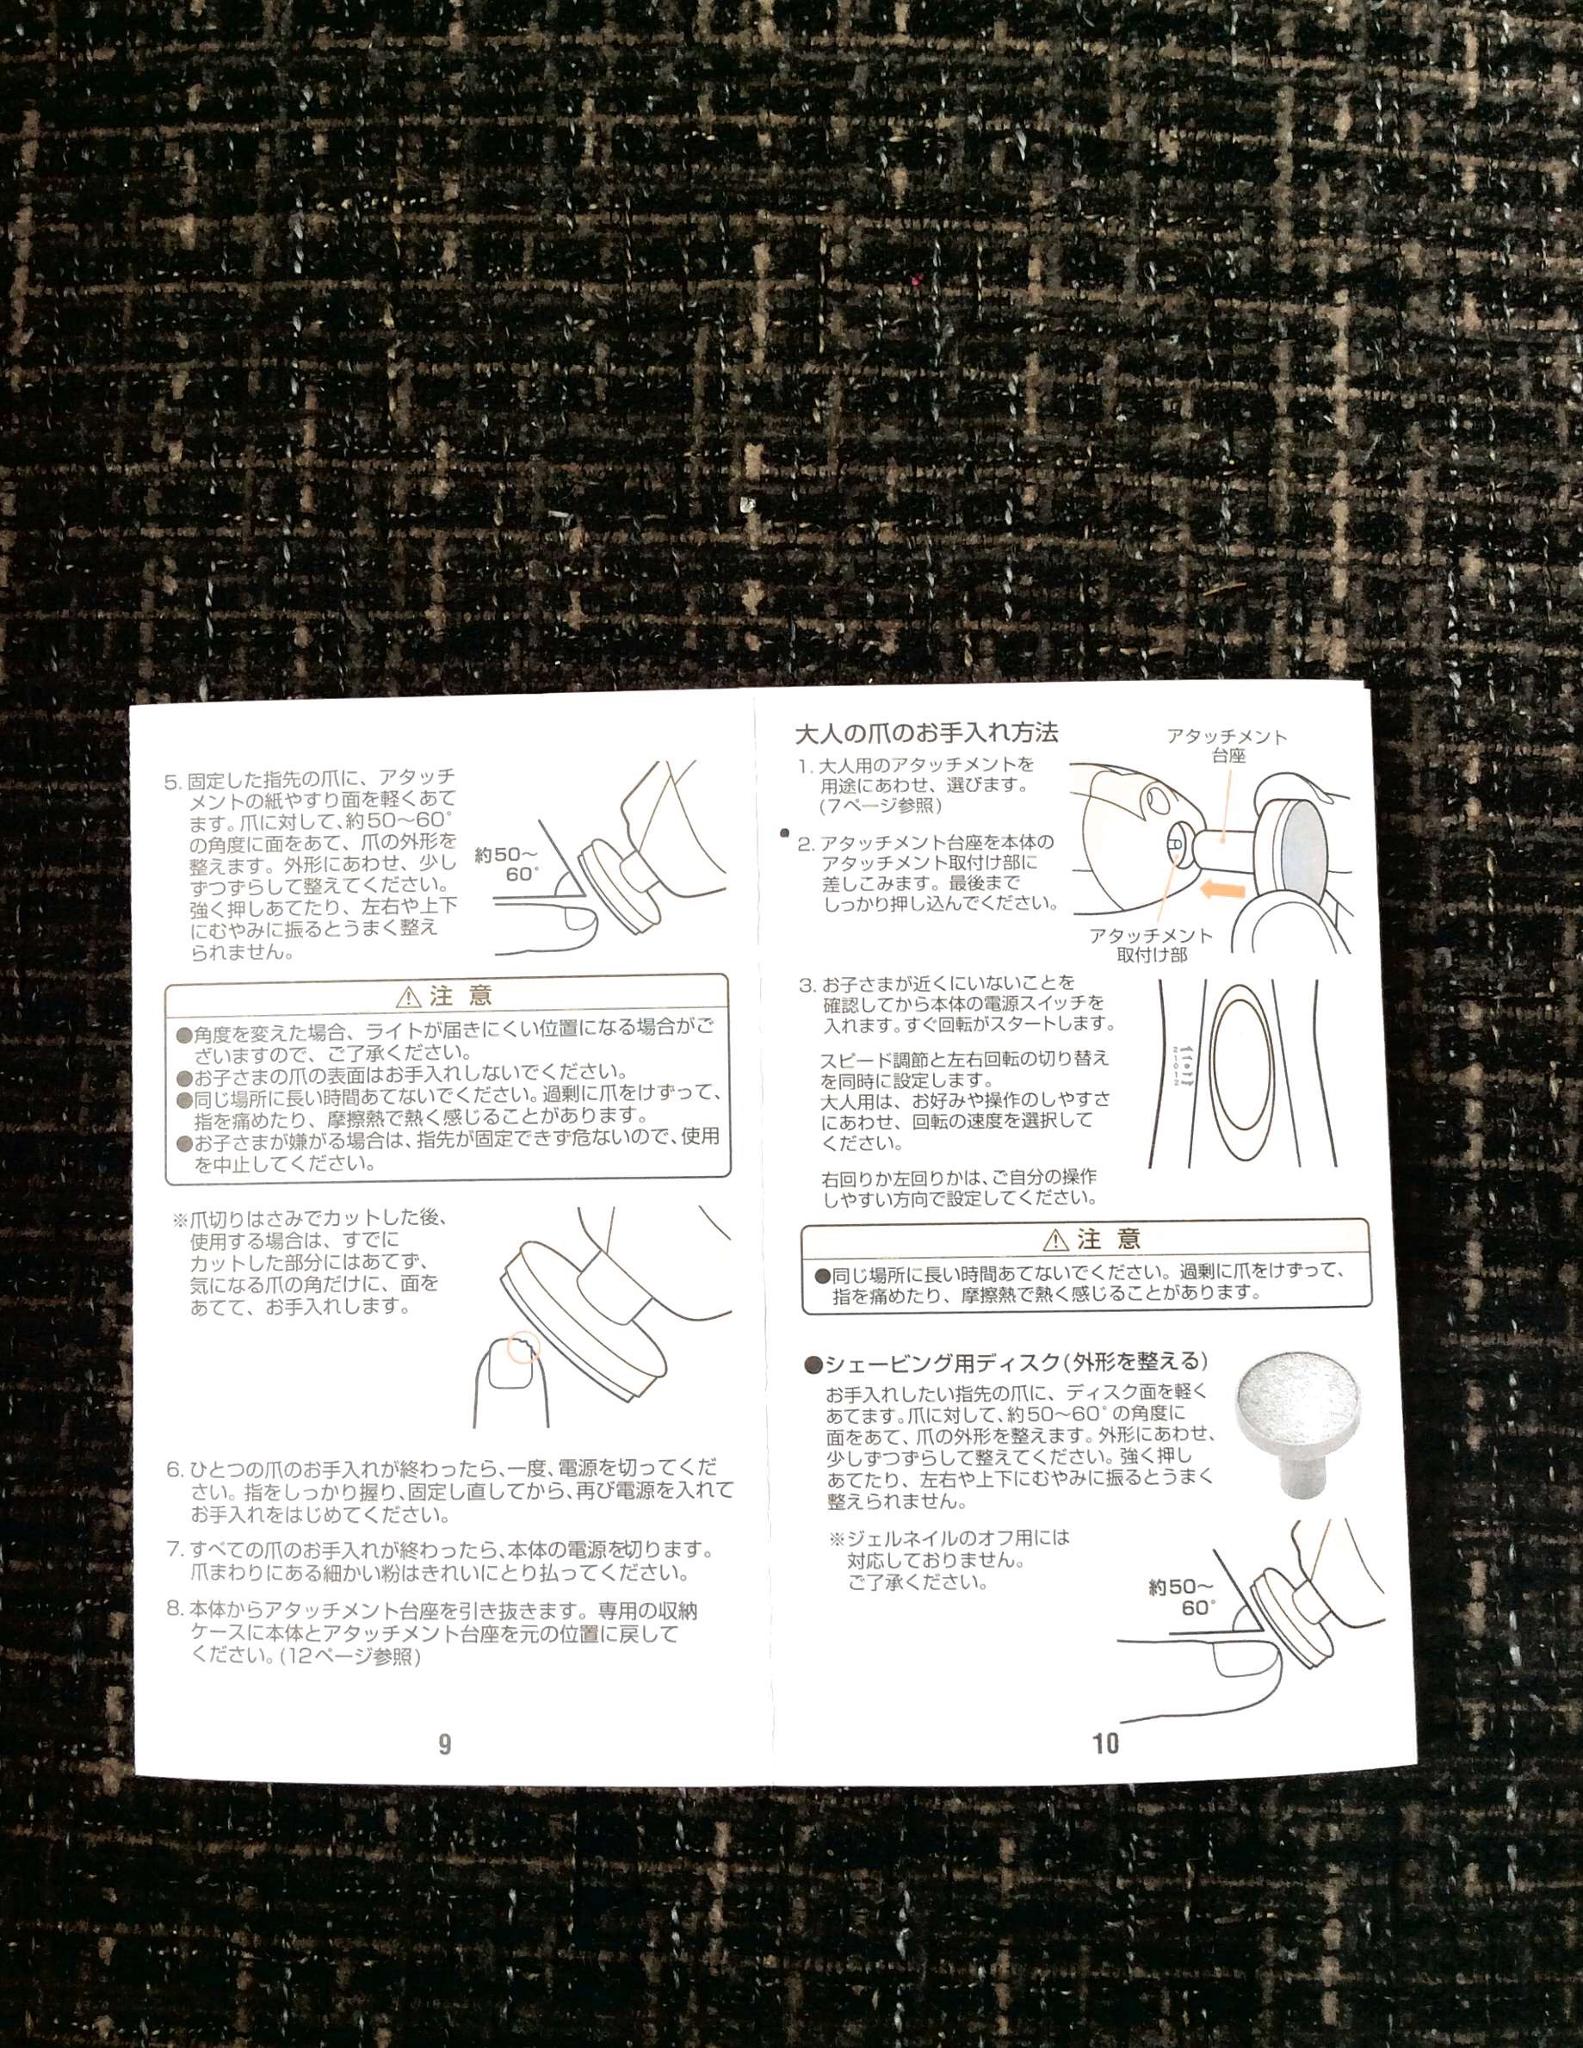 5. 固定した指先の爪に、アタッチ
メントの紙やすり面を軽くあて
ます。爪に対して、約50〜60°
の角度に面をあて、爪の外形を
整えます。外形にあわせ、少し
ずつずらして整えてください。
強く押しあてたり、左右や上下
にむやみに振るとうまく整え
られません。
約50〜
60°
⚠ 注 意
●角度を変えた場合、ライトが届きにくい位置になる場合がご
ざいますので、ご了承ください。
●お子さまの爪の表面はお手入れしないでください。
●同じ場所に長い時間あてないでください。過剰に爪をけずって、
指を痛めたり、摩擦熱で熱く感じることがあります。
●お子さまが嫌がる場合は、指先が固定できず危ないので、使用
を中止してください。
※爪切りはさみでカットした後、
使用する場合は、すでに
カットした部分にはあてず、
気になる爪の角だけに、面を
あてて、お手入れします。
6. ひとつの爪のお手入れが終わったら、一度、電源を切ってくだ
さい。指をしっかり握り、固定し直してから、再び電源を入れて
お手入れをはじめてください。
7. すべての爪のお手入れが終わったら、本体の電源を切ります。
爪まわりにある細かい粉はきれいにとり払ってください。
8. 本体からアタッチメント台座を引き抜きます。専用の収納
ケースに本体とアタッチメント台座を元の位置に戻して
ください。(12ページ参照)
9
大人の爪のお手入れ方法
1. 大人用のアタッチメントを
用途にあわせ、選びます。
(7ページ参照)
2. アタッチメント台座を本体の
アタッチメント取付け部に
差しこみます。最後まで
しっかり押し込んでください。
アタッチメント
台座
アタッチメント
取付け部
3. お子さまが近くにいないことを
確認してから本体の電源スイッチを
入れます。すぐ回転がスタートします。
スピード調節と左右回転の切り替え
を同時に設定します。
大人用は、お好みや操作のしやすさ
にあわせ、回転の速度を選択して
ください。
右回りか左回りかは、ご自分の操作
しやすい方向で設定してください。
⚠ 注 意
●同じ場所に長い時間あてないでください。過剰に爪をけずって、
指を痛めたり、摩擦熱で熱く感じることがあります。
●シェービング用ディスク(外形を整える)
お手入れしたい指先の爪に、ディスク面を軽く
あてます。爪に対して、約50〜60°の角度に
面をあて、爪の外形を整えます。外形にあわせ、
少しずつずらして整えてください。強く押し
あてたり、左右や上下にむやみに振るとうまく
整えられません。
※ジェルネイルのオフ用には
対応しておりません。
ご了承ください。
約50〜
60°
10